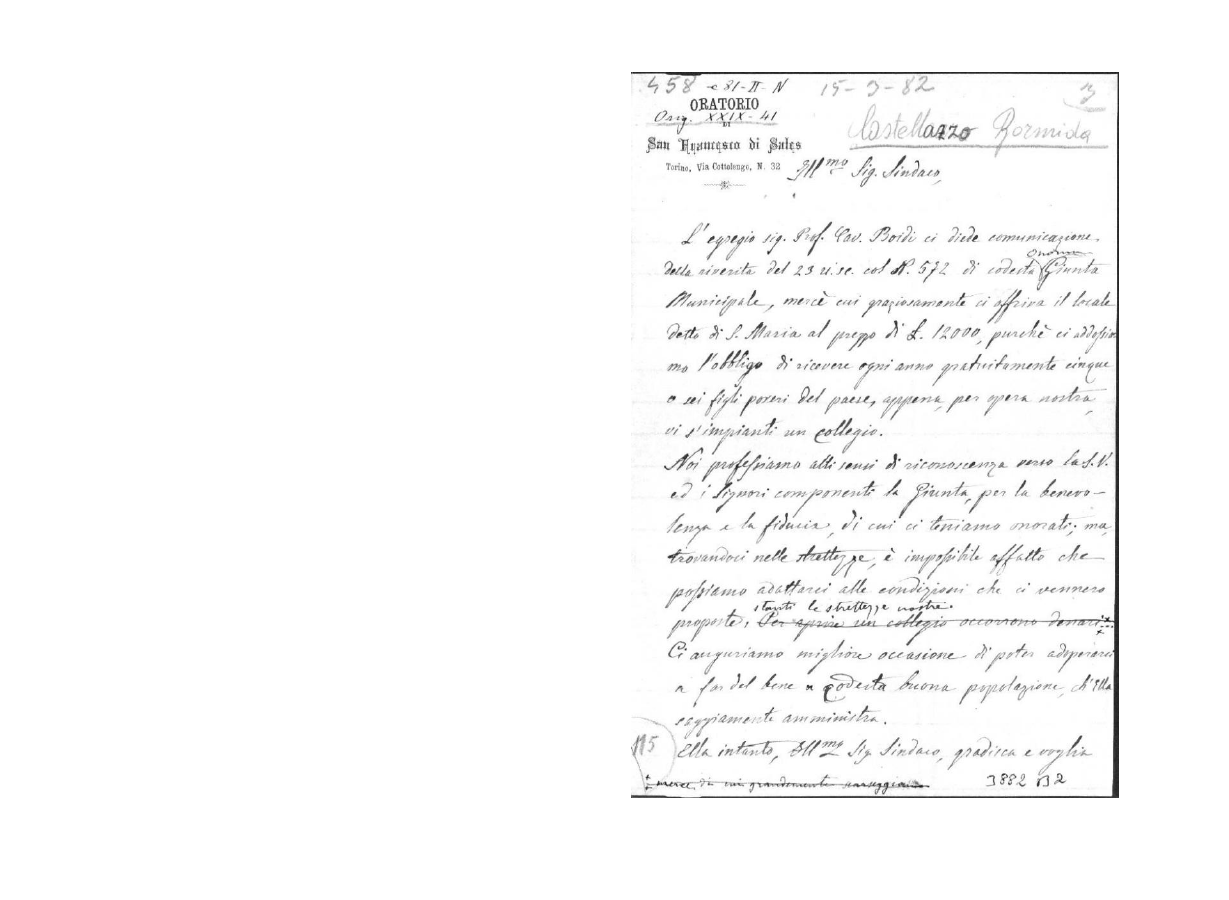 458 e 81-II-N 15-3-82 3
ORATORIO
Orig. XXIX-41
DI
Castellazzo Bormida
San Francesco di Sales
Torino, Via Cottolengo, N. 32
Ill.mo Sig. Sindaco,
L'egregio sig. Prof. Cav. Boidi ci diede comunicazione
onorma
della riverita del 23 u.sc. col N. 572 di codesta Giunta
Municipale, mercè cui graziosamente ci offriva il locale
detto di S. Maria al prezzo di £. 12000, purchè ci addossia
mo l'obbligo di ricevere ogni anno gratuitamente cinque
o sei figli poveri del paese, appena, per opera nostra,
vi s'impianti un collegio.
Noi professiamo alti sensi di riconoscenza verso la S.V.
ed i Signori componenti la Giunta, per la benevo-
lenza e la fiducia, di cui ci teniamo onorati; ma,
trovandoci nelle strettezze, è impossibile affatto che
possiamo adattarci alle condizioni che ci vennero
stanti le strettezze nostre.
proposte. Per aprire un collegio occorrono denari
Ci auguriamo migliore occasione di poter adoperarci
a far del bene a codesta buona popolazione, ch'Ella
saggiamente amministra.
115 Ella intanto, Ill.mo Sig. Sindaco, gradisca e voglia
merce, di cui grandemente
3882 B2